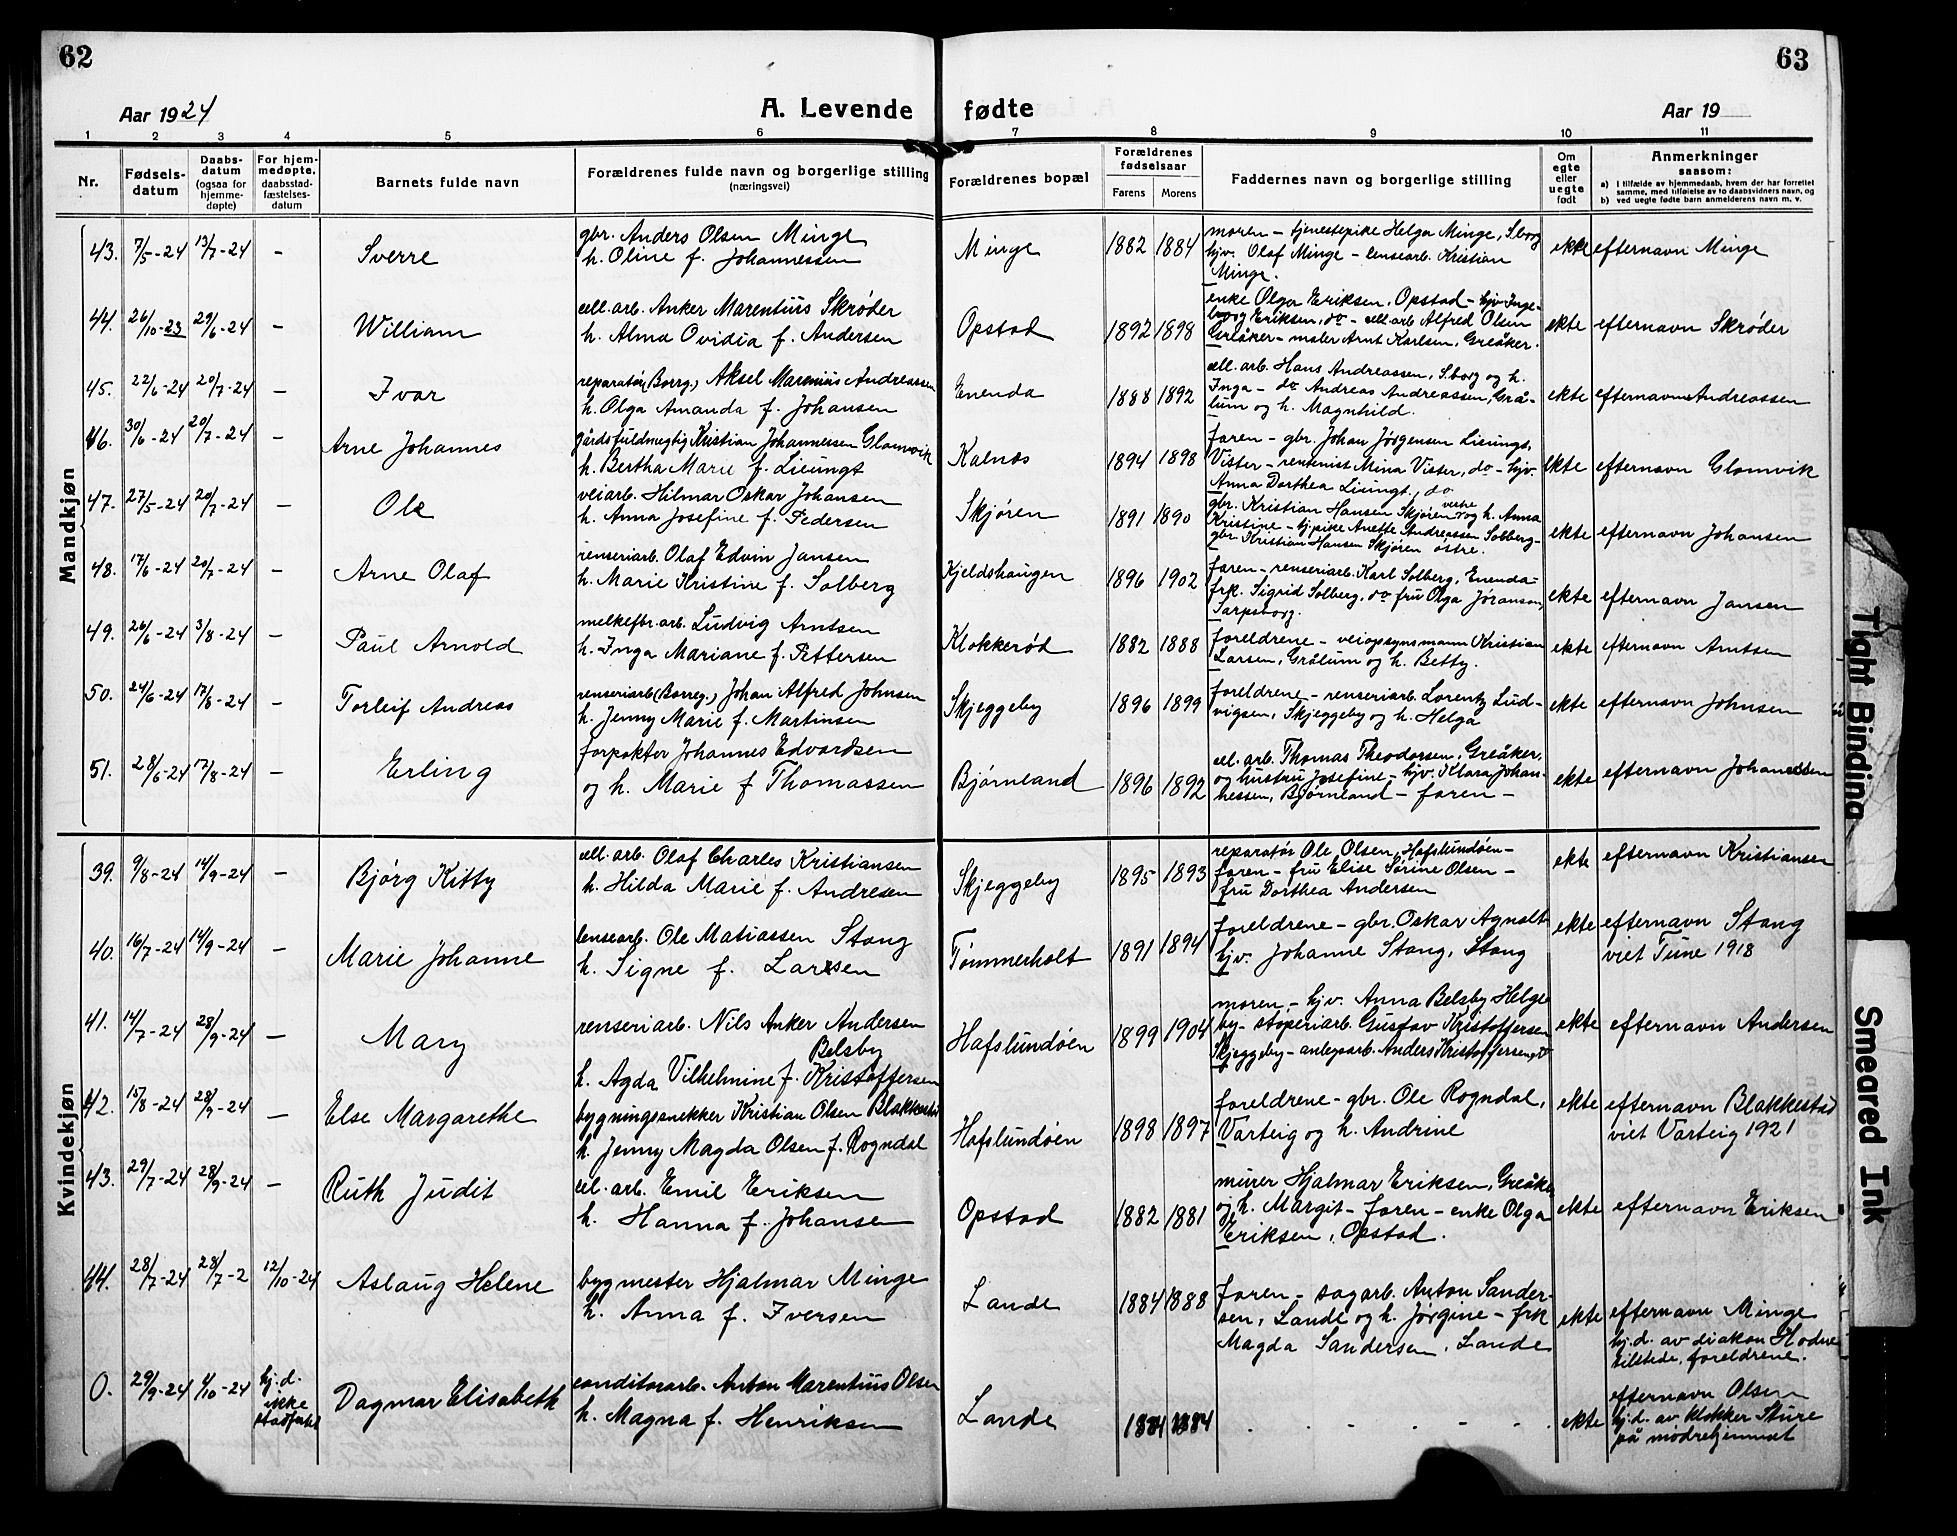 62
63
Aar 1924
A. Levende fødte
Aar 19
1 2 3 4 5 6 7 8 9 10 11
Nr.
Fødsels-
datum
Daabs-
datum
(ogsaa for
hjemme-
døpte)
For hjem-
medøpte,
daabsstad-
fæstelses-
datum
Barnets fulde navn
Forældrenes fulde navn og borgerlige stilling
(næringsvei)
Forældrenes bopæl
Forældrenes
fødselsaar
Farens Morens
Faddernes navn og borgerlige stilling
Om
egte
eller
uegte
født
Anmerkninger
saasom:
a) I tilfælde av hjemmedaab, hvem der har forrettet
samme, med tilføielse av to daabsvidners navn, og
b) ved uegte fødte barn anmelderens navn m. v.
Mandkjøn
43. 7/5-24 13/7-24 - Sverre
gbr. Anders Olsen Minge
h. Oline f. Johannessen
Minge 1882 1884
moren - tjenestepike Helga Minge, S.borg
hjv. Olaf Minge - lensearb. Kristian
Minge.
ekte efternavn Minge
44. 26/10-23 29/6-24 - William
cell. arb. Anker Marentius Skrøder
h. Alma Ovidia f. Andersen
Opstad 1892 1898
enke Olga Eriksen, Opstad - hjv. Inge-
borg Eriksen, do - cell. arb Alfred Olsen
Greåker - maler Arnt Karlsen, Greåker.
ekte efternavn Skrøder
45. 22/6-24 20/7-24 - Ivar
reparatør (Borrg.) Aksel Marenius Andreassen
h. Olga Amanda f. Johansen
Enenda 1888 1892
cell. arb. Hans Andreassen, S.borg og h.
Inga - do Andreas Andreassen, Grå-
lum og h. Magnhild.
ekte efternavn Andreassen
46. 30/6-24 20/7-24 - Arne Johannes
gårdsfuldmegtig Kristian Johannessen Glomvik
h. Bertha Marie f. Lieungt
Kalnes 1894 1898
faren - gbr. Johan Jørgensen Lieungt,
Vister - rentenist Mina Vister, do - hjv.
Anna Dorthea Liungt, do
ekte efternavn Glomvik
47. 27/5-24 20/7-24 - Ole
veiarb. Hilmar Oskar Johansen
h. Anna Josefine f. Pedersen
Skjøren 1891 1890
gbr. Kristian Hansen Skjøren vestre og h. Anna
Kristine - hj.pike Anette Andreassen Solberg-
gbr Kristian Hansen Skjøren østre.
ekte efternavn Johansen
48. 17/6-24 20/7-24 - Arne Olaf
renseriarb. Olaf Edvin Jansen
h. Marie Kristine f. Solberg
Kjeldshaugen 1896 1902
faren - renseriarb. Karl Solberg, Enenda-
frk. Sigrid Solberg, do fru Olga Jøranson,
Sarpsborg.
ekte efternavn Jansen
49. 26/6-24 3/8-24 - Paul Arnold
melkefbr. arb. Ludvig Arntsen
h. Inga Mariane f. Pettersen
Klokkerød 1882 1888
foreldrene - veiopsynsmann Kristian
Larsen, Grålum og h. Betty.
ekte efternavn Arntsen
50. 24/6-24 17/8-24 - Torleif Andreas
renseriarb (Borreg.) Johan Alfred Johnsen
h. Jenny Marie f. Martinsen
Skjeggeby 1896 1899
foreldrene - renseriarb. Lorentz Lud-
vigsen, Skjeggeby og h. Helga
ekte efternavn Johnsen
51. 28/6-24 17/8-24 - Erling
forpakter Johannes Edvardsen
og h. Marie f Thomassen
Bjørnland 1896 1892
cel. arb. Thomas Theodorsen, Greåker,
og hustru Josefine - hjv. Klara Johan-
nessen, Bjørnland - faren -
ekte efternavn Johannessen
Kvindekjøn
39. 9/8-24 14/9-24 - Bjørg Kitty
cell. arb. Olaf Charles Kristiansen
h. Hilda Marie f. Andresen
Skjeggeby 1895 1893
reparatør Ole Olsen, Hafslundøen -
faren - fru Elise Sørine Olsen -
fru Dorthea Andersen
ekte efternavn Kristiansen
40. 16/7-24 14/9-24 - Marie Johanne
lensearb. Ole Matiassen Stang
h. Signe f. Larsen
Tømmerholt 1891 1894
foreldrene - gbr. Oskar Agnalt
hjv. Johanne Stang, Stang
ekte efternavn Stang
viet Tune 1918
41. 14/7-24 28/9-24 - Mary
renseriarb. Nils Anker Andersen
Belsby
h. Agda Vilhelmine f. Kristoffersen
Hafslundøen 1899 1904
moren - hjv. Anna Belsby Helge-
by - støperiarb. Gustav Kristoffersen
Skjeggeby - anlegsarb. Anders Kristoffersen, do
ekte efternavn Andersen
42. 15/8-24 28/9-24 - Else Margarethe
bygningssnekker Kristian Olsen Blakkestad
h. Jenny Magda Olsen f. Rogndal
Hafslundøen 1898 1897
foreldrene - gbr. Ole Rogndal,
Varteig og h. Andrine
ekte efternavn Blakkestad
viet Varteig 1921
43. 29/7-24 28/9-24 - Ruth Judit
cel. arb. Emil Eriksen
h. Hanna f. Johansen
Opstad 1882 1881
murer Hjalmar Eriksen, Greåker
og h. Margit - faren - enke Olga
Eriksen, Opstad.
ekte efternavn Eriksen
44. 28/7-24 28/7-2 12/10-24 Aslaug Helene
bygmester Hjalmar Minge
h. Anna f. Iversen
Lande 1884 1888
faren - sagarb. Anton Sander-
sen, Lande og h. Jørgine - frk
Magda Sandersen, Lande
ekte efternavn Minge
hj.d. av diakon Hodne
tilstede, foreldrene.
0. 29/9-24 4/10-24 hj. d.
ikke
stadfestet
Dagmar Elisabeth
conditorarb. Anton Marentius Olsen
h. Magna f. Henriksen
Lande 1884 1884
- - - - -
ekte efternavn Olsen
hj.d. av klokker Sture
på mødrehjemmet
Tight Binding
Smeared Ink